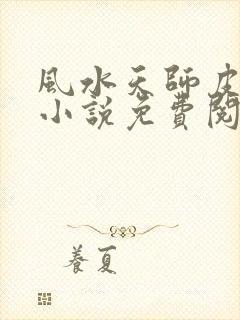 風水天師皮
小說免費閱
養夏